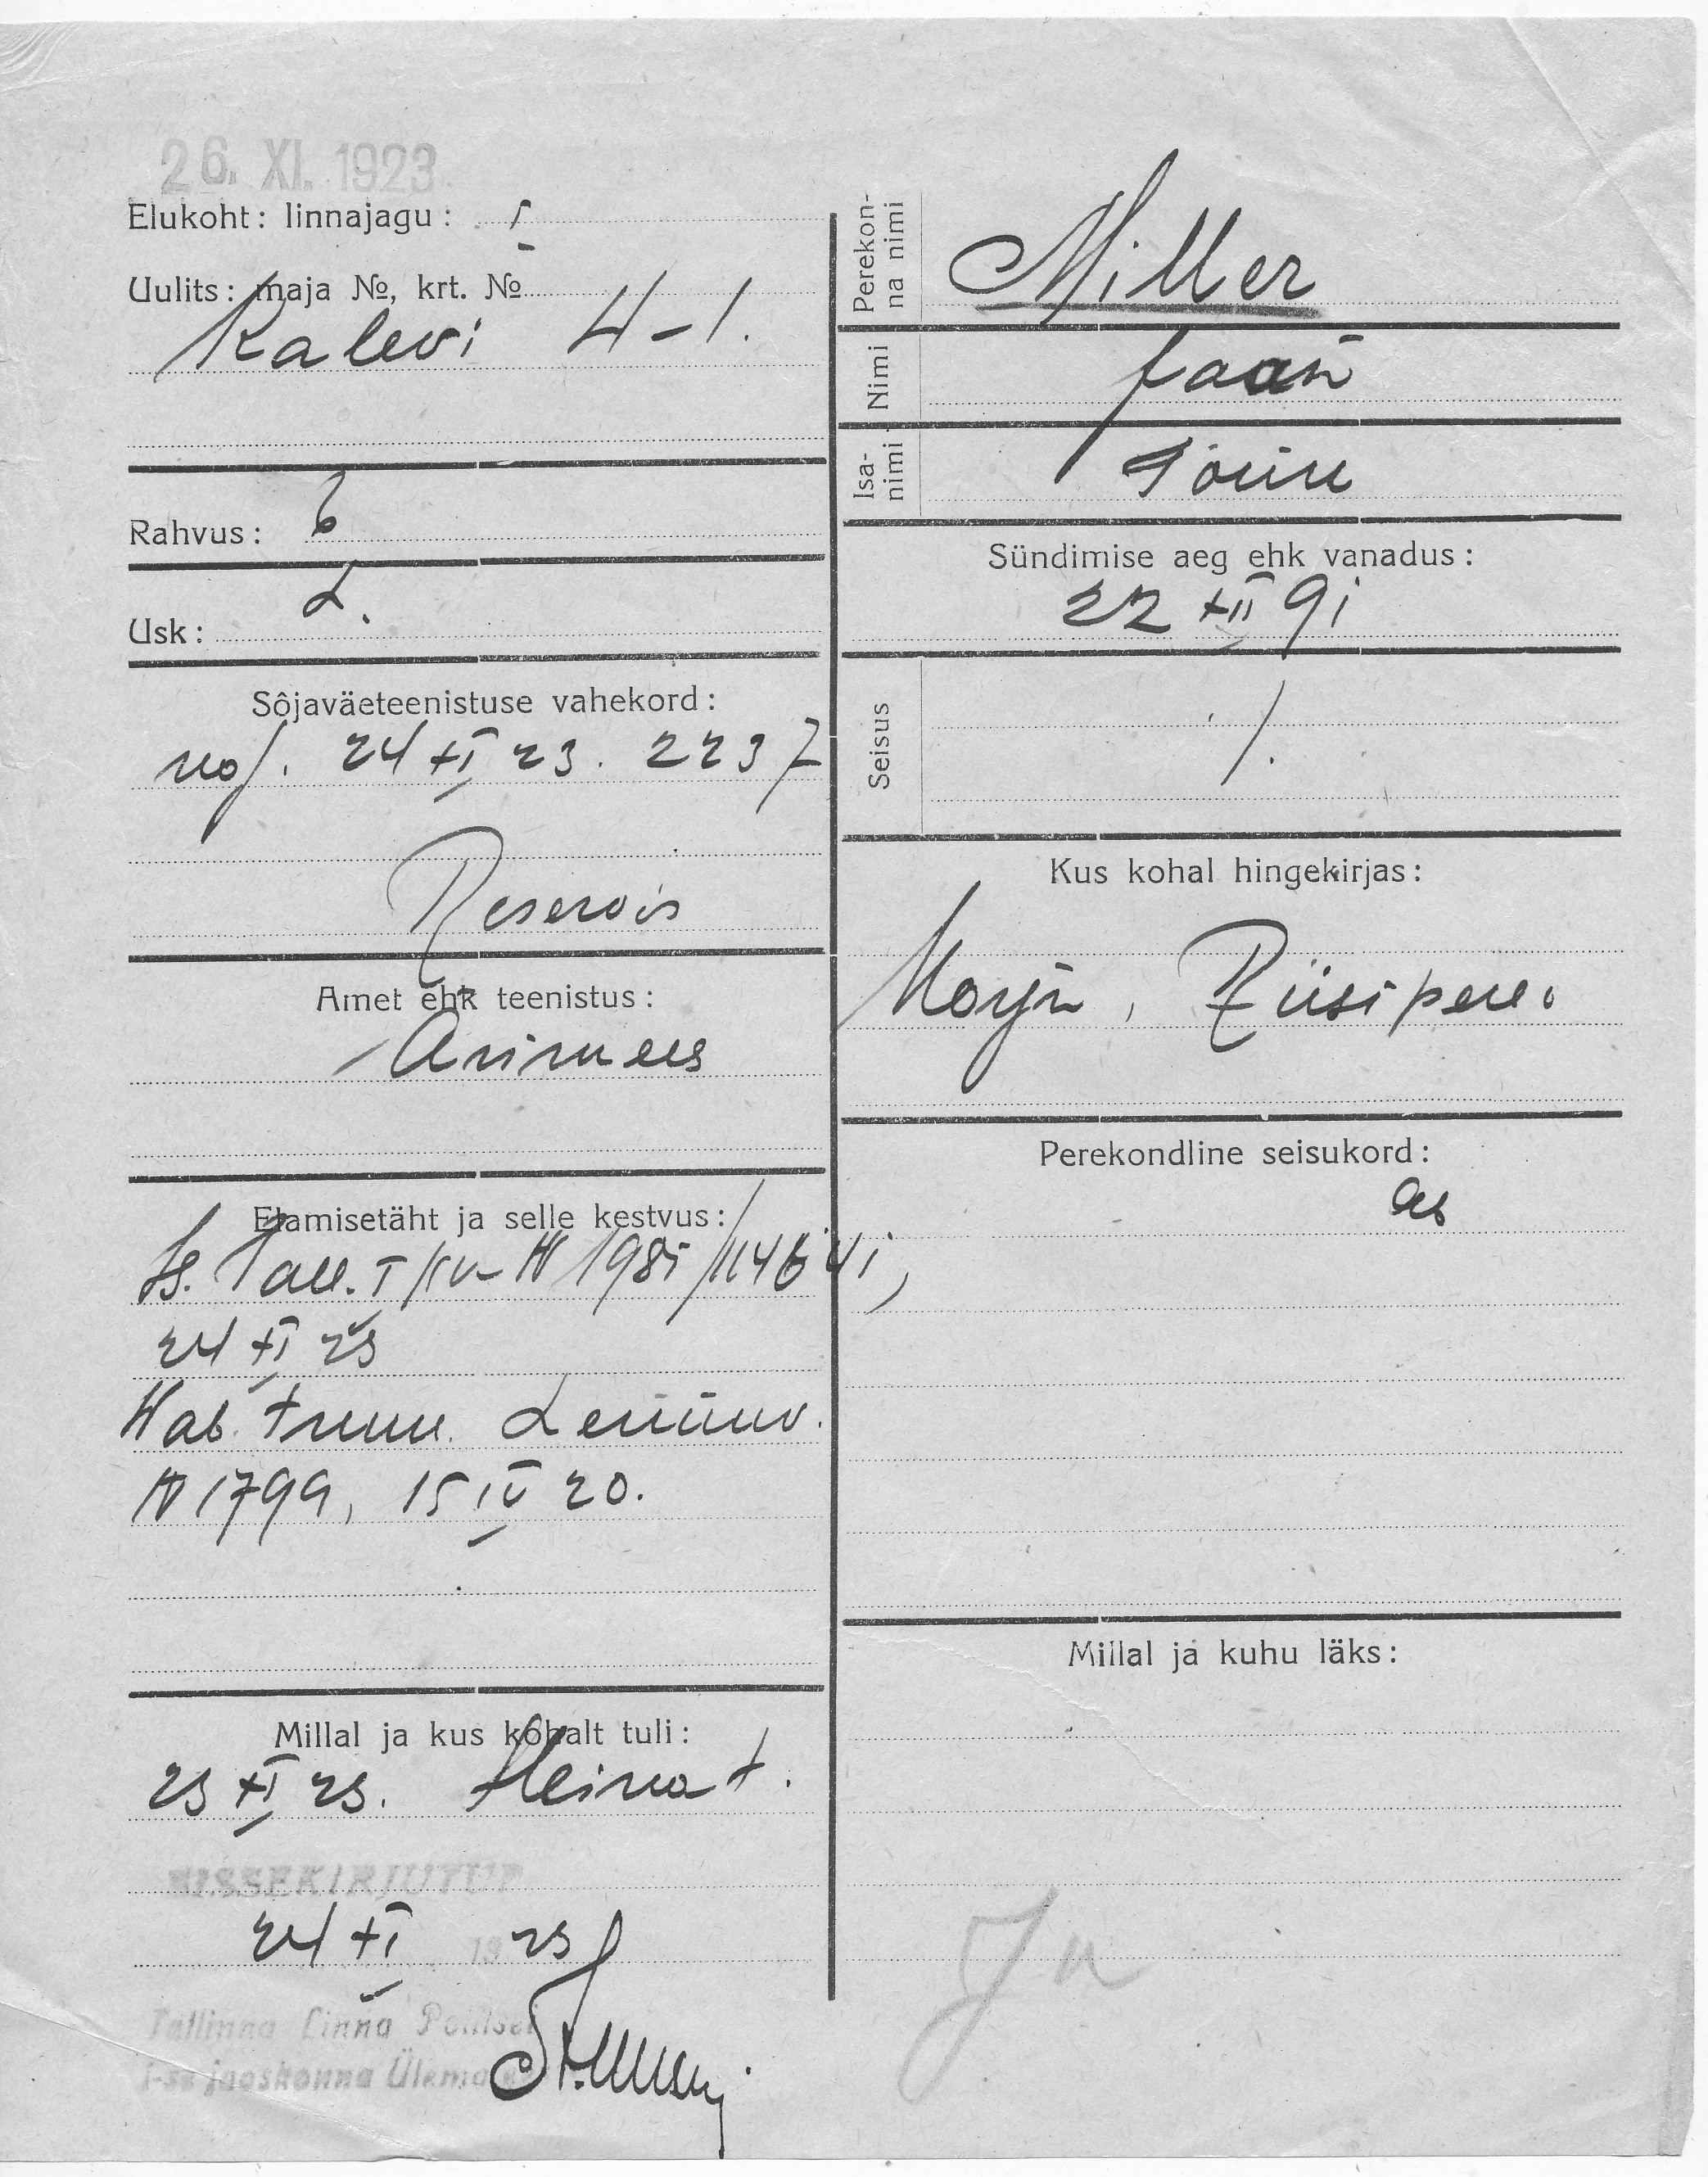 26. XI. 1923
Elukoht: linnajagu: I
Uulits: maja №, krt. №
Kalevi 4-1.
Rahvus: E
Usk: L.
Sôjaväeteenistuse vahekord:
24 XI 23. 2237
Reservis
Amet ehk teenistus:
Ärimees
Elamisetäht ja selle kestvus:
Is. Tall. I
24 XI 23
Wab.
N 1799, 15 IV 20.
Millal ja kus kohalt tuli:
23 XI 23. Heina t.
SISSEKIRJUTUD
24 XI 1923
Tallinna Linna Politsei
I-se jaoskonna Ülema
Perekon-
na nimi
Miller
Nimi
Jaan
Isa-
nimi
Tõnu
Sündimise aeg ehk vanadus:
22 XII 91
Seisus
/.
Kus kohal hingekirjas:
Harju, Riisipere.
Perekondline seisukord:
ab
Millal ja kuhu läks: